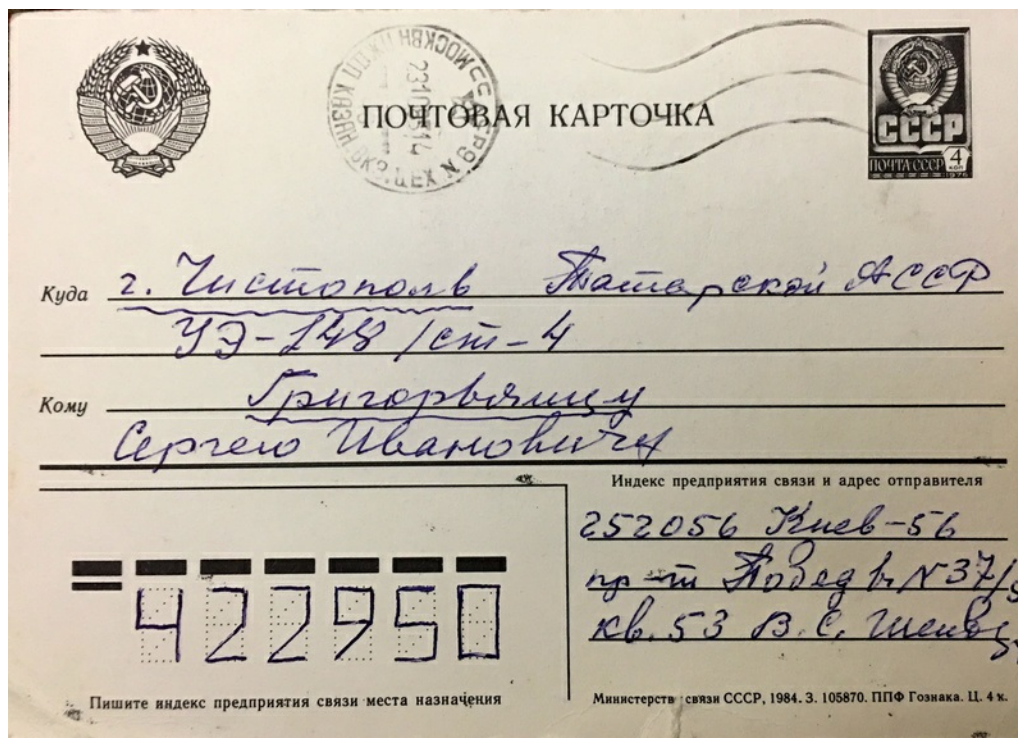 ПОЧТОВАЯ КАРТОЧКА
СССР
ПОЧТА СССР 4 КОП
1976
Куда г. Чистополь Татарской АССР
УЭ-148/ст-4
Кому Григорьянцу
Сергею Ивановичу
Индекс предприятия связи и адрес отправителя
252056 Киев-56
пр-т Победы №37/
кв. 53 В. С.
422950
Пишите индекс предприятия связи места назначения
Министерств связи СССР, 1984. З. 105870. ППФ Гознака. Ц. 4 к.